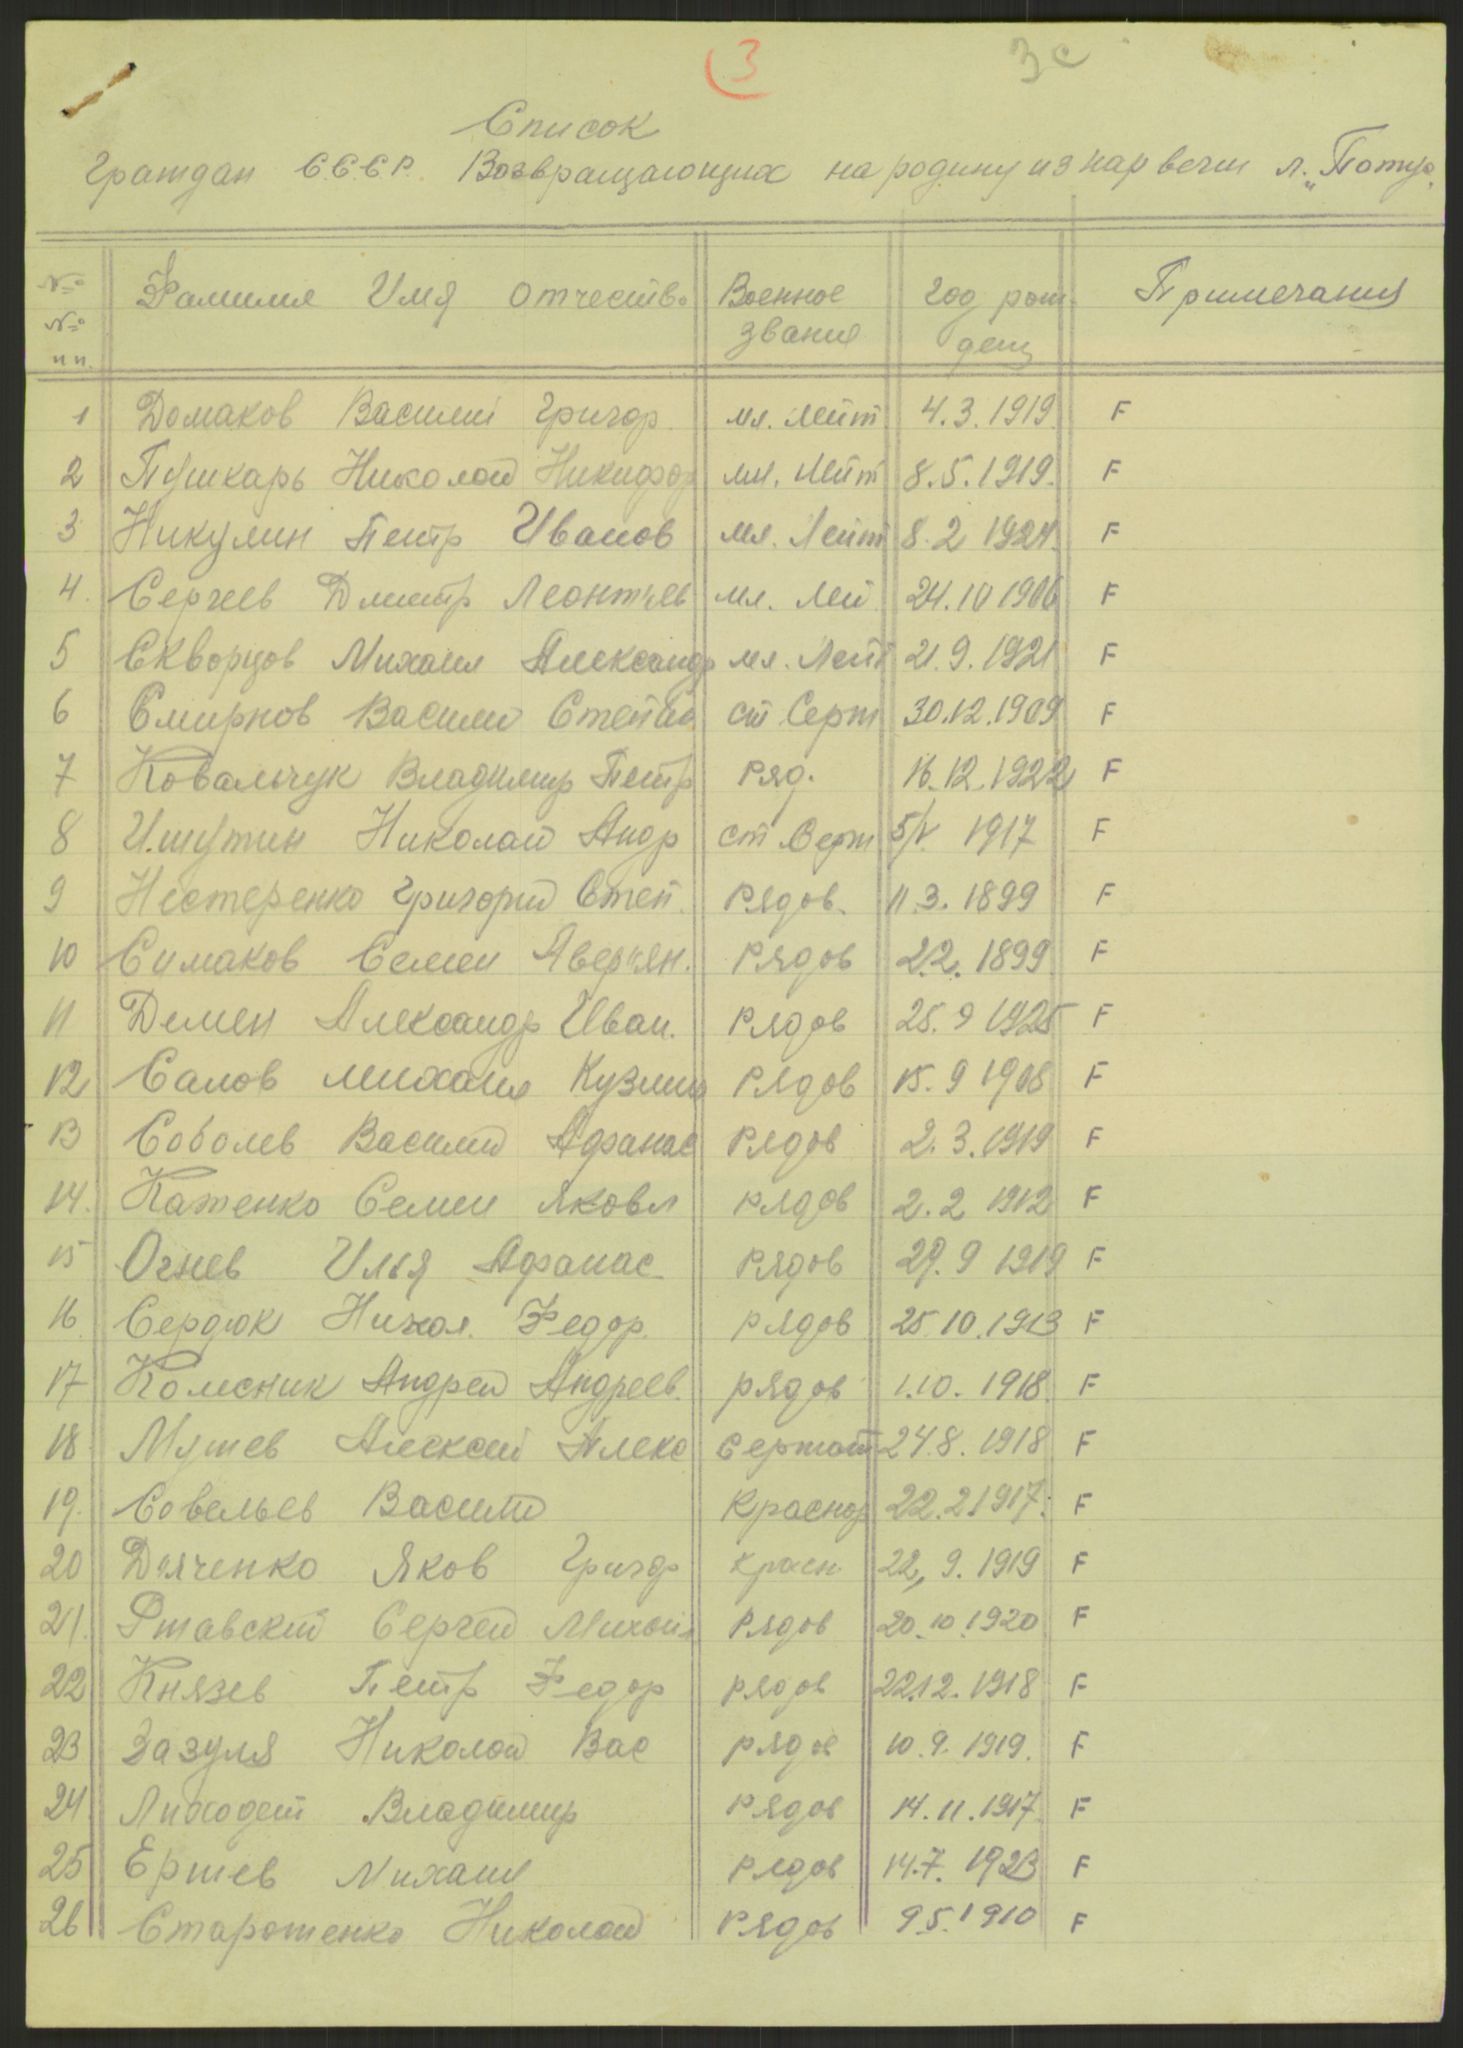 3
3с
Список
Граждан С.С.С.Р. Возвращающих на родину из нарвечи л. „Потус„
№ № пп. Фамилия Имя Отчество Военное звание Год рож дени Примечания
1 Домаков Василий Григор. мл. лейт 4.3.1919. F
2 Пушкарь Николай Никифор мл. лейт 8.5.1919. F
3 Никулин Петр Иванов мл. Лейт 8.2 1924. F
4. Сергеев Дмитр Леонтьев мл. Лей 24.10 1906 F
5 Скворцов Михаил Александр мл. Лейт 21.9.1921 F
6 Смирнов Василий Степан ст Серж 30.12.1909 F
7 Ковальчук Владимир Петр ряд. 16.12.1922 F
8 Ишутин Николай Андр ст Серж 5/V 1917 F
9 Нестеренко Григорий Степ. рядов. 11.3.1899 F
10 Симаков Семен Аверьян. рядов 2.2.1899 F
11 Демен Александр Иван. рядов 25.9 1925 F
12 Салов михаил Кузмич рядов 15.9 1908 F
13 Соболев Василий Афанас рядов 2.3.1919 F
14. Катенко Семен Яковл рядов 2.2 1912 F
15 Огнев Илья Афанас рядов 29.9 1919 F
16. Сердюк Никол. Федор. рядов 25.10.1913 F
17 Колесник Андрей Андреев. рядов 1.10.1918. F
18 Мушев Алексей Алекс Сержант 24.8.1918 F
19. Совельев Василий Краснор 22.2.1917. F
20 Дьяченко Яков Григор красн. 22,9.1919 F
21. Ртавский Сергей Михаил рядов 20.10.1920 F
22 Князев Петр Федор рядов 22.12.1918 F
23 Зазуля Николай Вас рядов 10.9.1919. F
24 Лиходет Владимир рядов 14.11.1917. F
25 Ершев Михаил рядов 14.7.1923 F
26 Старотенко Николай рядов 9.5.1910 F